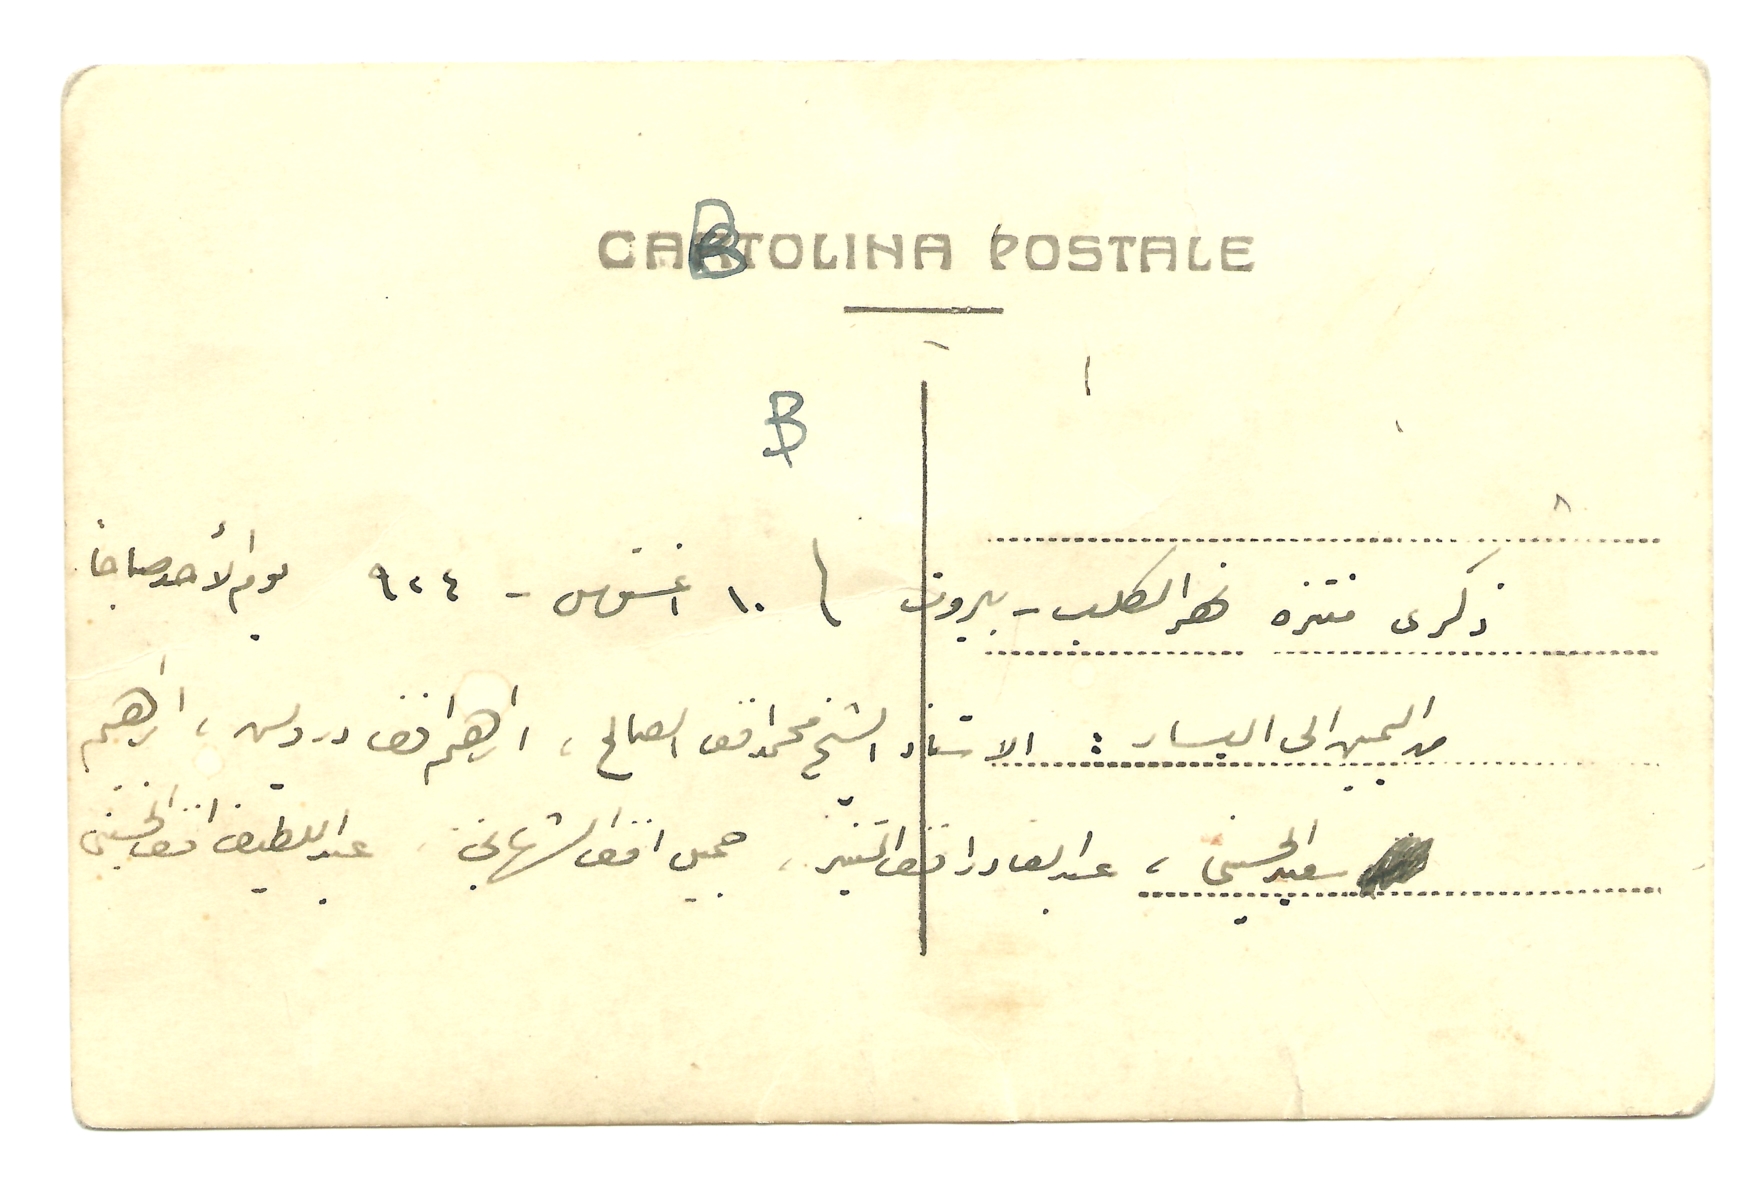 CARTOLINA POSTALE
B
B
ذكرى منتزه نهر الكلب - بيروت ١٠ اغسطس - ٩٢٤ يوم الأحد صباحاً
من اليمين الى اليسار: الاستاذ الشيخ محمد افندي الصالح، ابراهيم افندي درويش، ابراهيم
سعيد الحسيني، عبد القادر افندي جميل افندي الشهابي، عبد اللطيف افندي الحسيني